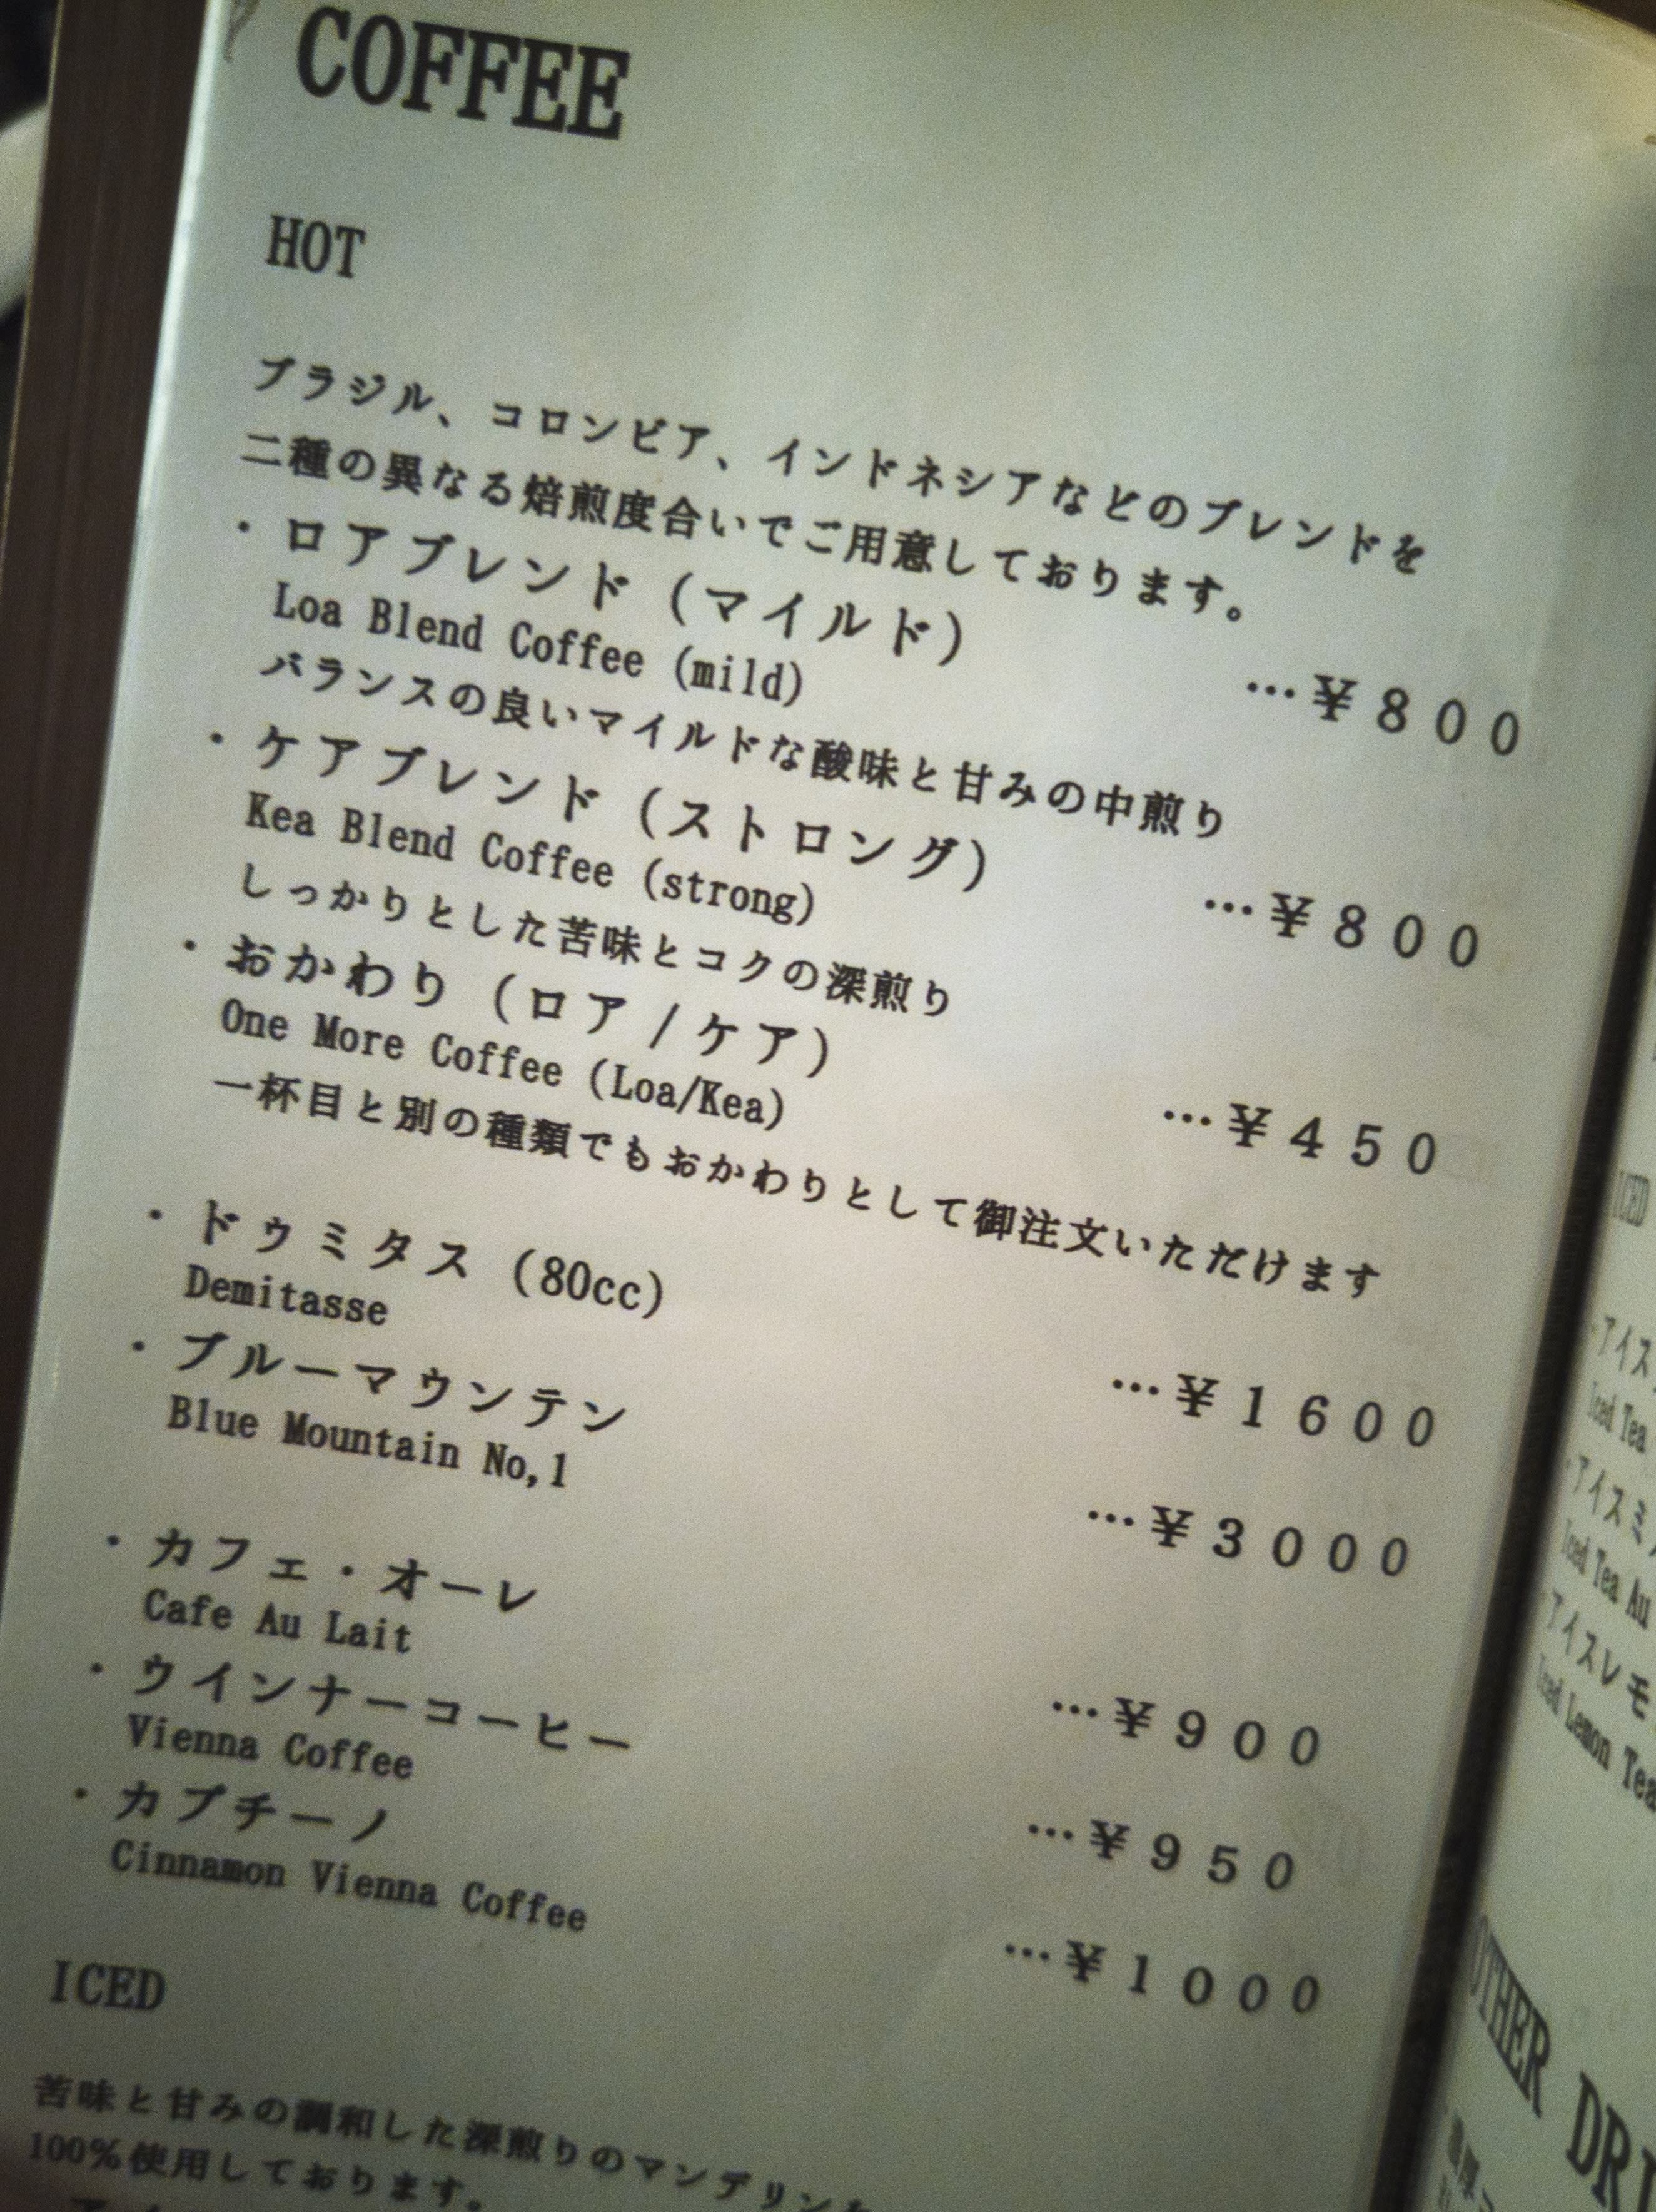 COFFEE
HOT
ブラジル、コロンビア、インドネシアなどのブレンドを
二種の異なる焙煎度合いでご用意しております。
・ロアブレンド（マイルド） …￥８００
Loa Blend Coffee (mild)
バランスの良いマイルドな酸味と甘みの中煎り
・ケアブレンド（ストロング） …￥８００
Kea Blend Coffee (strong)
しっかりとした苦味とコクの深煎り
・おかわり（ロア／ケア） …￥４５０
One More Coffee (Loa/Kea)
一杯目と別の種類でもおかわりとして御注文いただけます
・ドゥミタス（80cc） …￥１６００
Demitasse
・ブルーマウンテン …￥３０００
Blue Mountain No,1
・カフェ・オーレ …￥９００
Cafe Au Lait
・ウインナーコーヒー …￥９５０
Vienna Coffee
・カプチーノ …￥１０００
Cinnamon Vienna Coffee
ICED
苦味と甘みの調和した深煎りのマンデリンを
100%使用しております。
ICED
・アイス
Iced Tea
・アイスミ
Iced Tea Au
・アイスレモ
Iced Lemon Tea
OTHER DRI